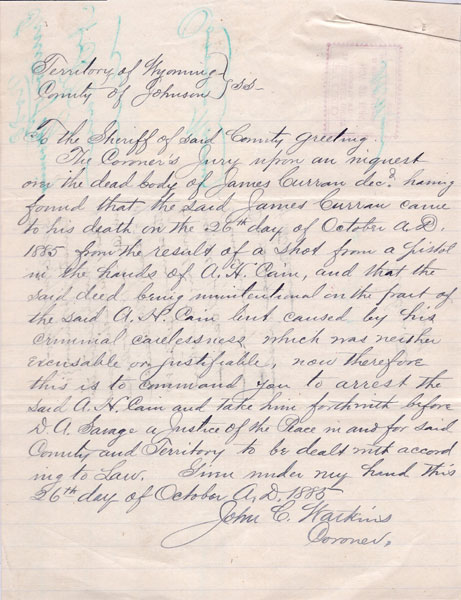 Territory of Wyoming } SS
County of Johnson
To the Sheriff of said County Greeting
The Coroner's Jury upon an inquest
on the dead body of James Curran decd. having
found that the said James Curran came
to his death on the 26th day of October A.D.
1885 from the result of a shot from a pistol
in the hands of A. H. Cain, and that the
said deed being unintentional on the part of
the said A. H. Cain but caused by his
criminal carelessness which was neither
excusable or justifiable, now therefore
this is to command you to arrest the
said A. H. Cain and take him forthwith before
D A. Savage a Justice of the Peace in and for said
County and Territory to be dealt with accord
ing to Law. Given under my hand this
26th day of October A.D. 1885
John C. Watkins
Coroner.